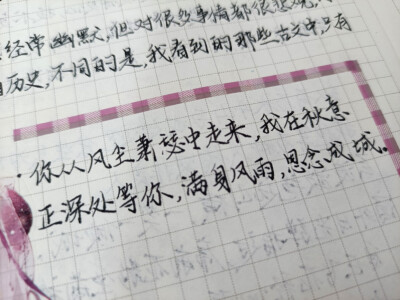 经常幽默,但对很多事情都很悲观,
历史,不同的是,我看到的那些古文中,只有
·你从风尘萧瑟中走来,我在秋意
正深处等你,满身风雨,思念成城。